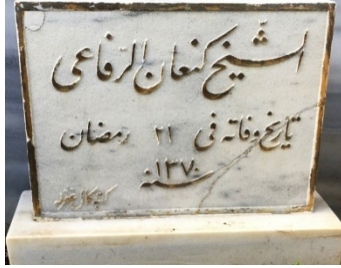 الشيخ كنعان الرفاعى
تاريخ وفاته فى ٢١ رمضان
سنه ١٣٧٠